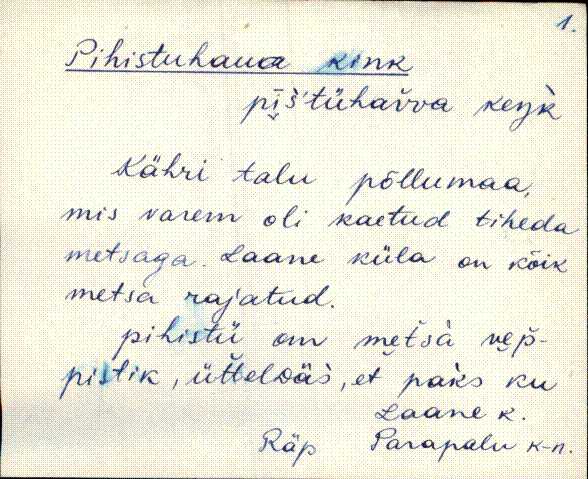 1.
Pihistuhaua kink
pīš'tühavva keŋ̀k
Kähri talu põllumaa,
mis varem oli kaetud tiheda
metsaga. Laane küla on kõik
metsa rajatud.
pihistü om metsà vep̆-
pistik, üttelDäs, et paks ku
Laane k.
Räp Parapalu k-n.